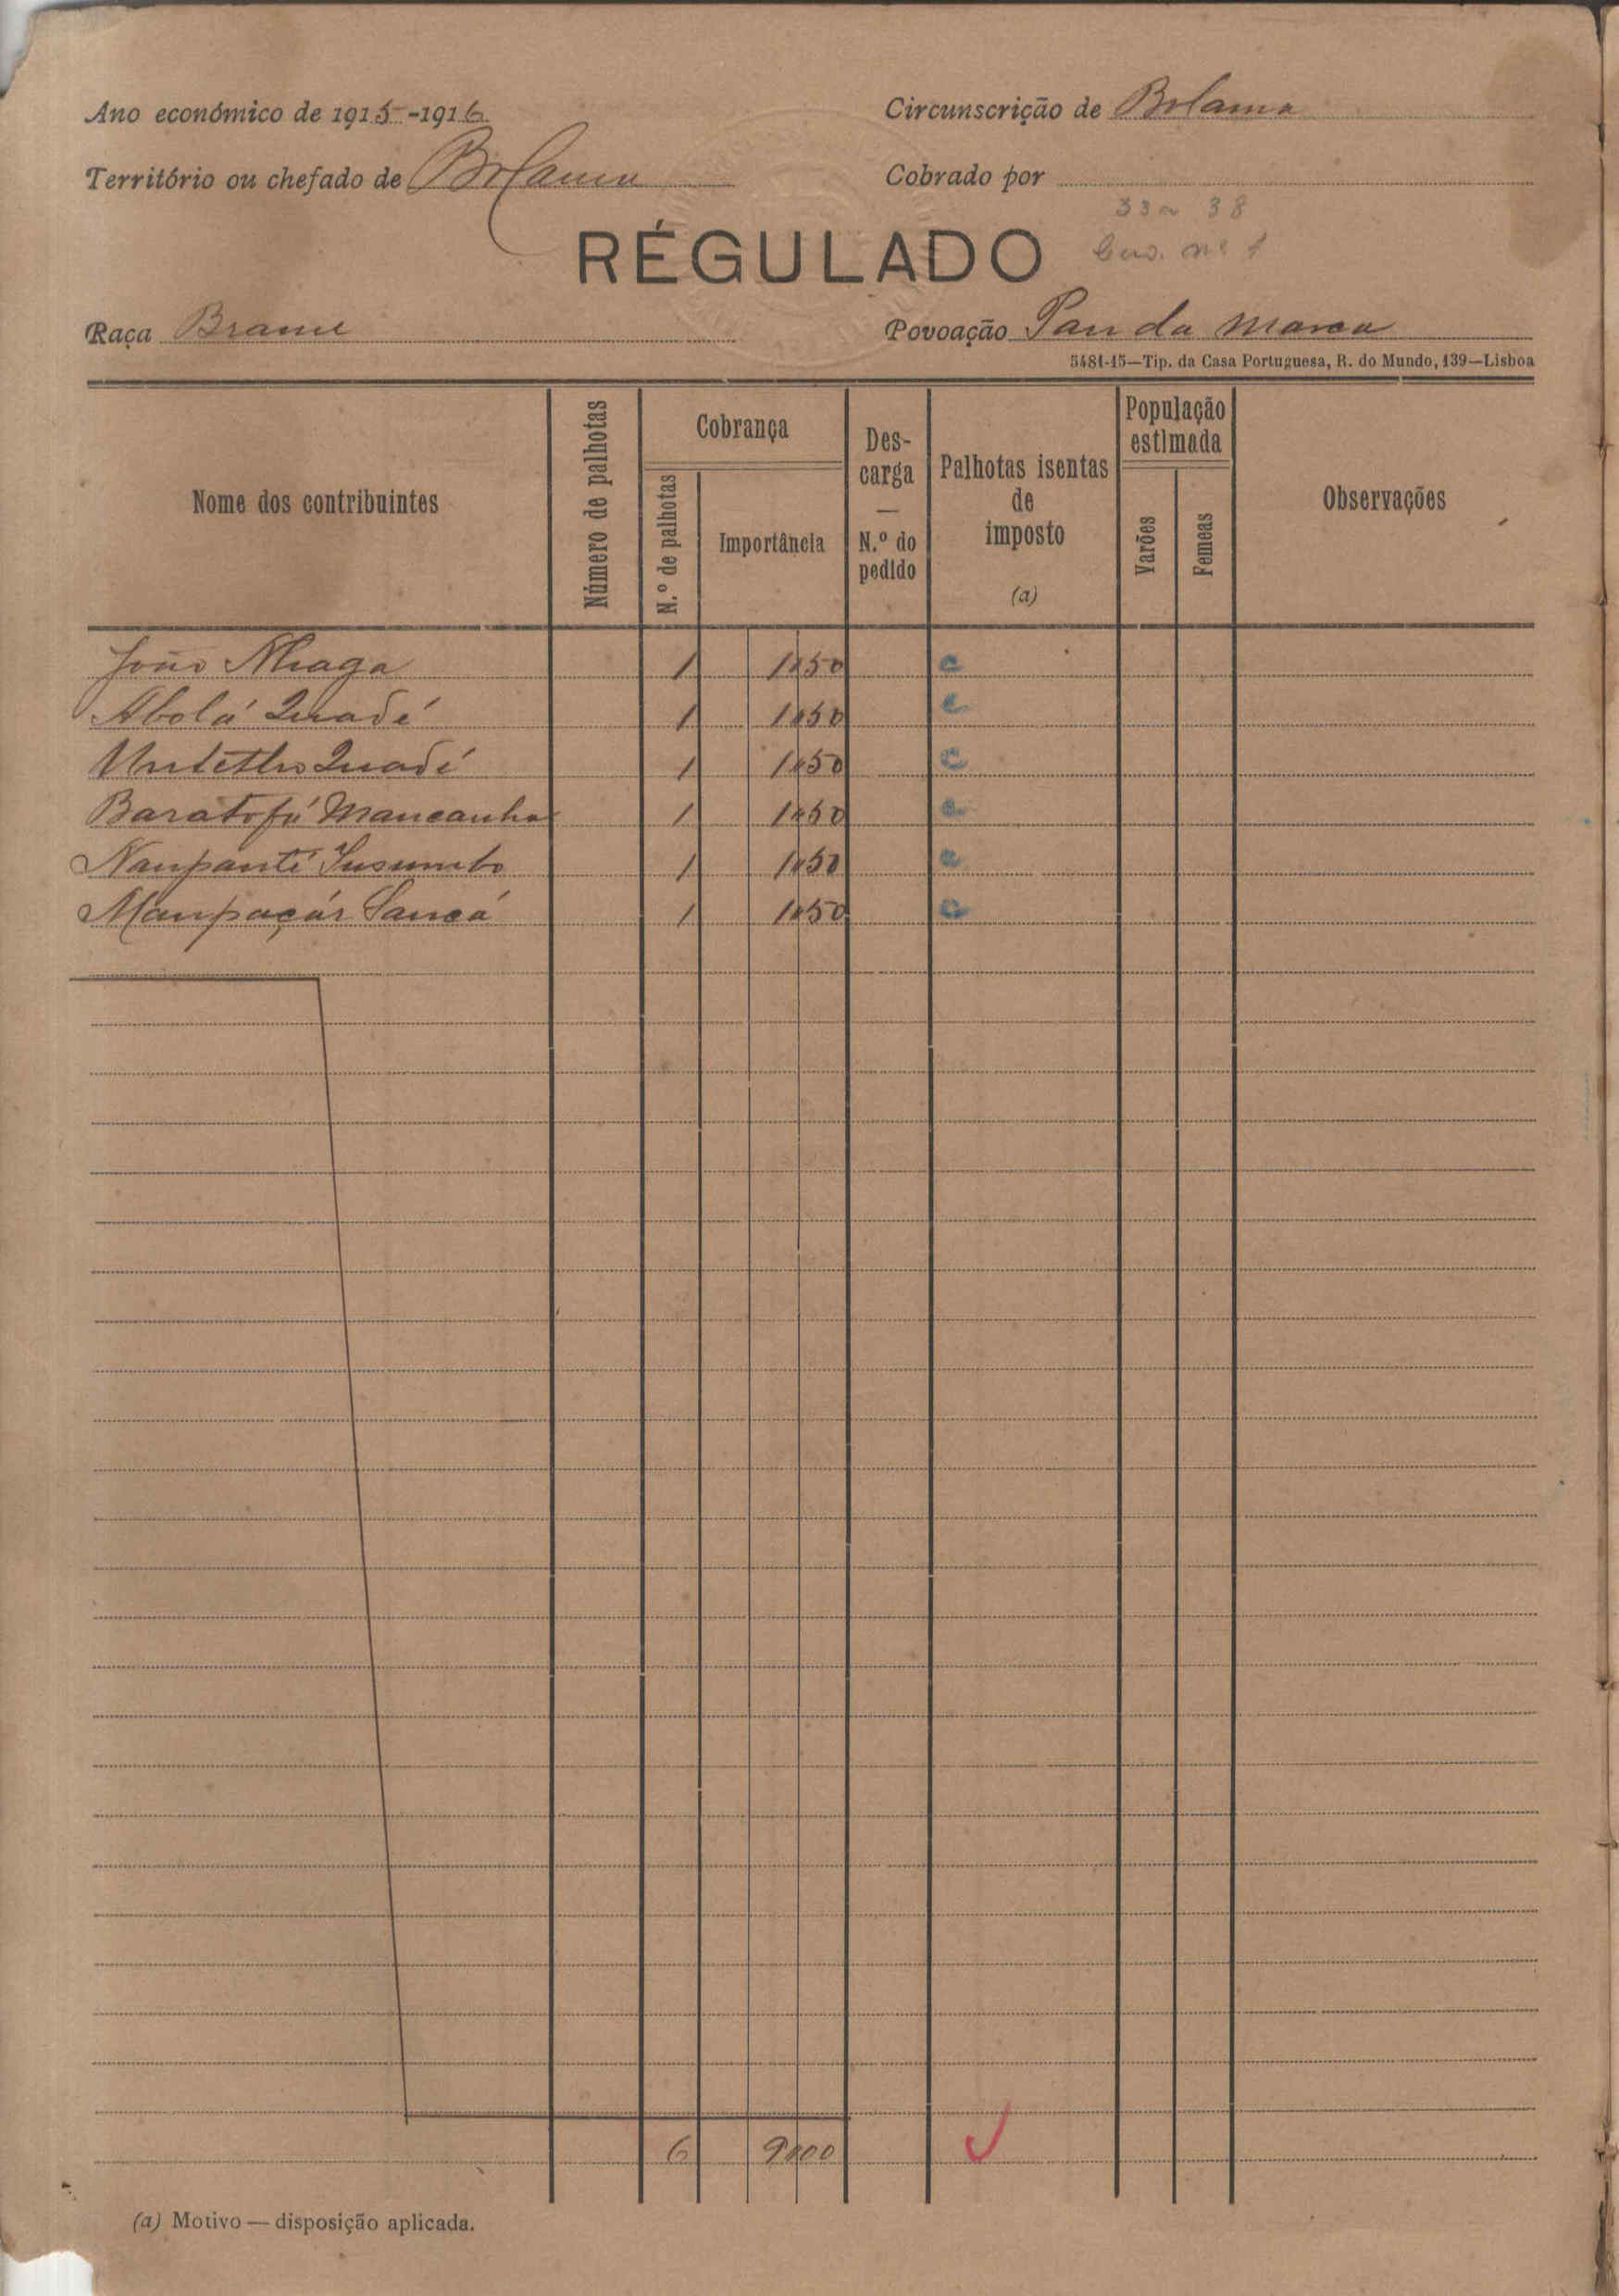 Ano económico de 1915-1916
Circunscrição de Bolama
Território ou chefado de Bolama
Cobrado por
33 a 38
RÉGULADO
nº 1
Raça Brame
Povoação Pau da Marca
5481-15—Tip. da Casa Portuguesa, R. do Mundo, 139—Lisboa
Nome dos contribuintes
Número de palhotas
Cobrança
N.º de palhotas
Importância
Descarga — N.º do pedido
Palhotas isentas de imposto (a)
População estimada
Varões
Femeas
Observações
João 1 1$50 c
Abolá Quadé 1 1$50 c
Quadé 1 1$50 c
Baratofá Mancanha 1 1$50 c
Nanpanté 1 1$50 c
Manpaçár Sancá 1 1$50 c
6 9$00
(a) Motivo — disposição aplicada.